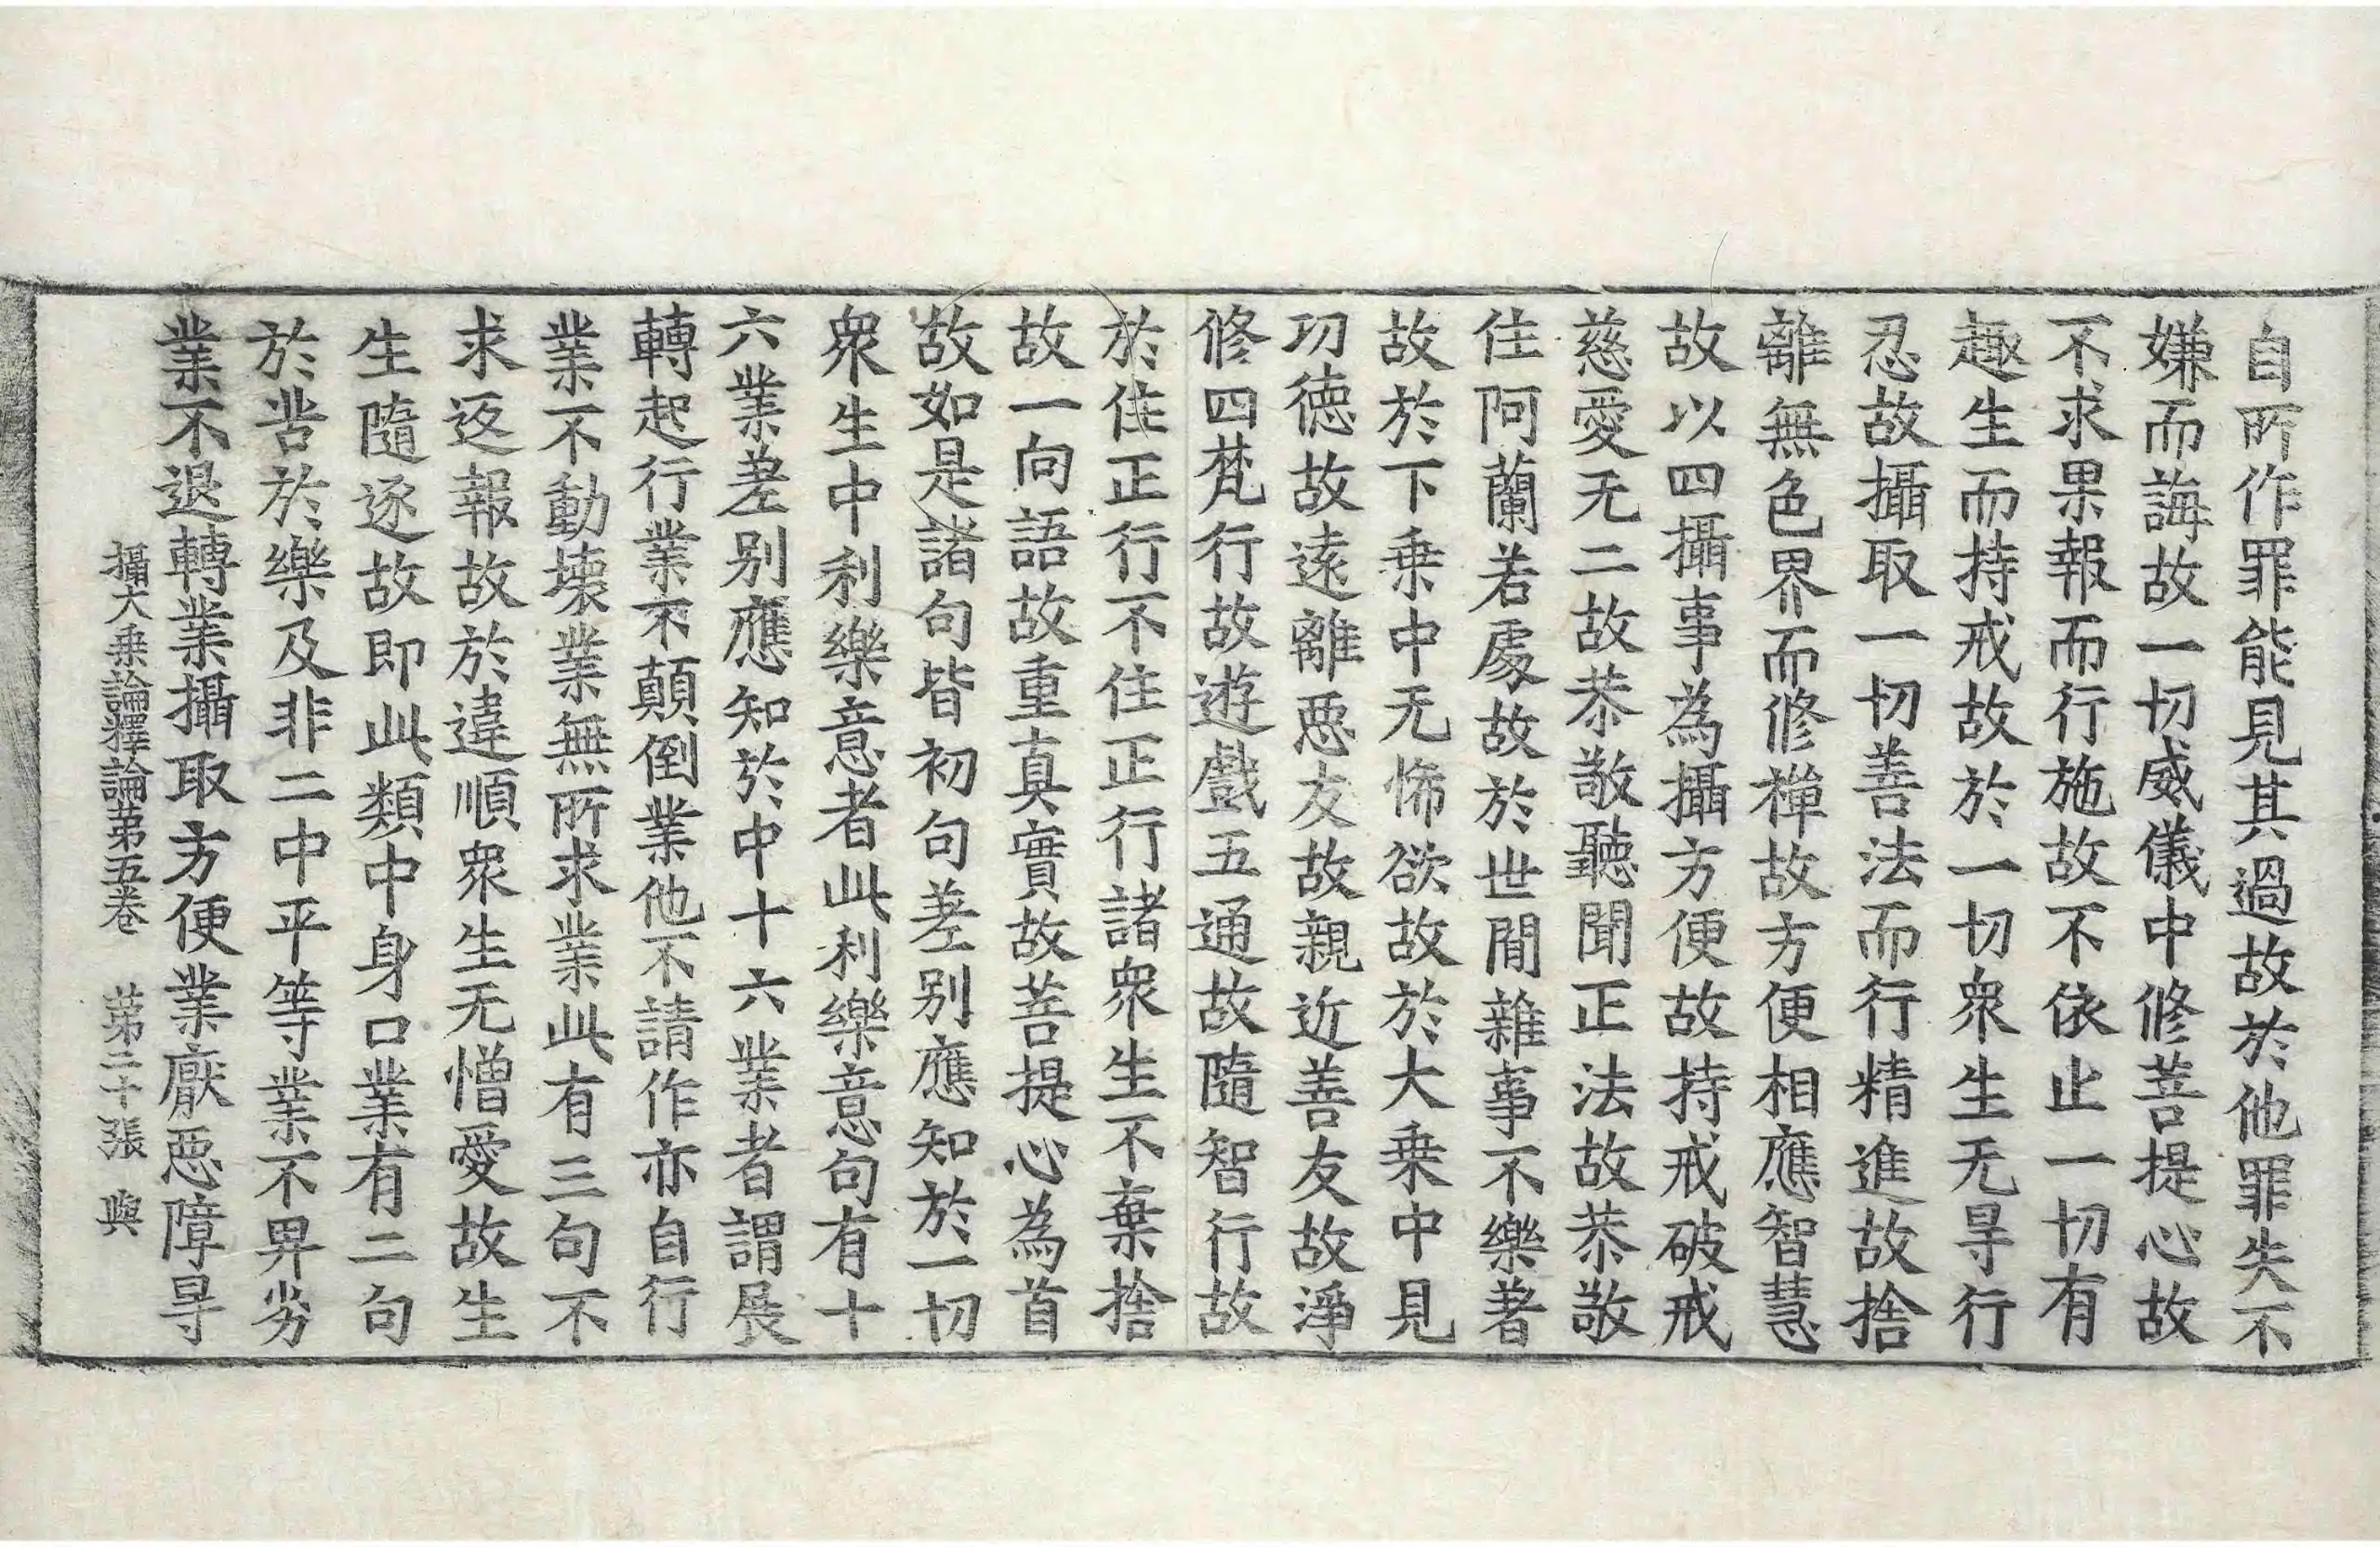 自所作罪能見其過故於他罪失不
嫌而誨故一切威儀中修菩提心故
不求果報而行施故不依止一切有
趣生而持戒故於一切衆生无㝵行
忍故攝取一切善法而行精進故捨
離無色界而修禪故方便相應智慧
故以四攝事為攝方便故持戒破戒
慈愛无二故恭敬聽聞正法故恭敬
住阿蘭若處故於世間雜事不樂著
故於下乗中无悕欲故於大乗中見
功徳故遠離惡友故親近善友故淨
修四梵行故遊戲五通故隨智行故
於住正行不住正行諸衆生不棄捨
故一向語故重真實故菩提心為首
故如是諸句皆初句差别應知於一切
衆生中利樂意者此利樂意句有十
六業差别應知於中十六業者謂展
轉起行業不顛倒業他不請作亦自行
業不動壞業無所求業此有三句不
求返報故於違順衆生无憎愛故生
生隨逐故即此類中身口業有二句
於苦於樂及非二中平等業不畀劣
業不退轉業攝取方便業厭惡障㝵
攝大乗論釋論第五卷　第二十張　與